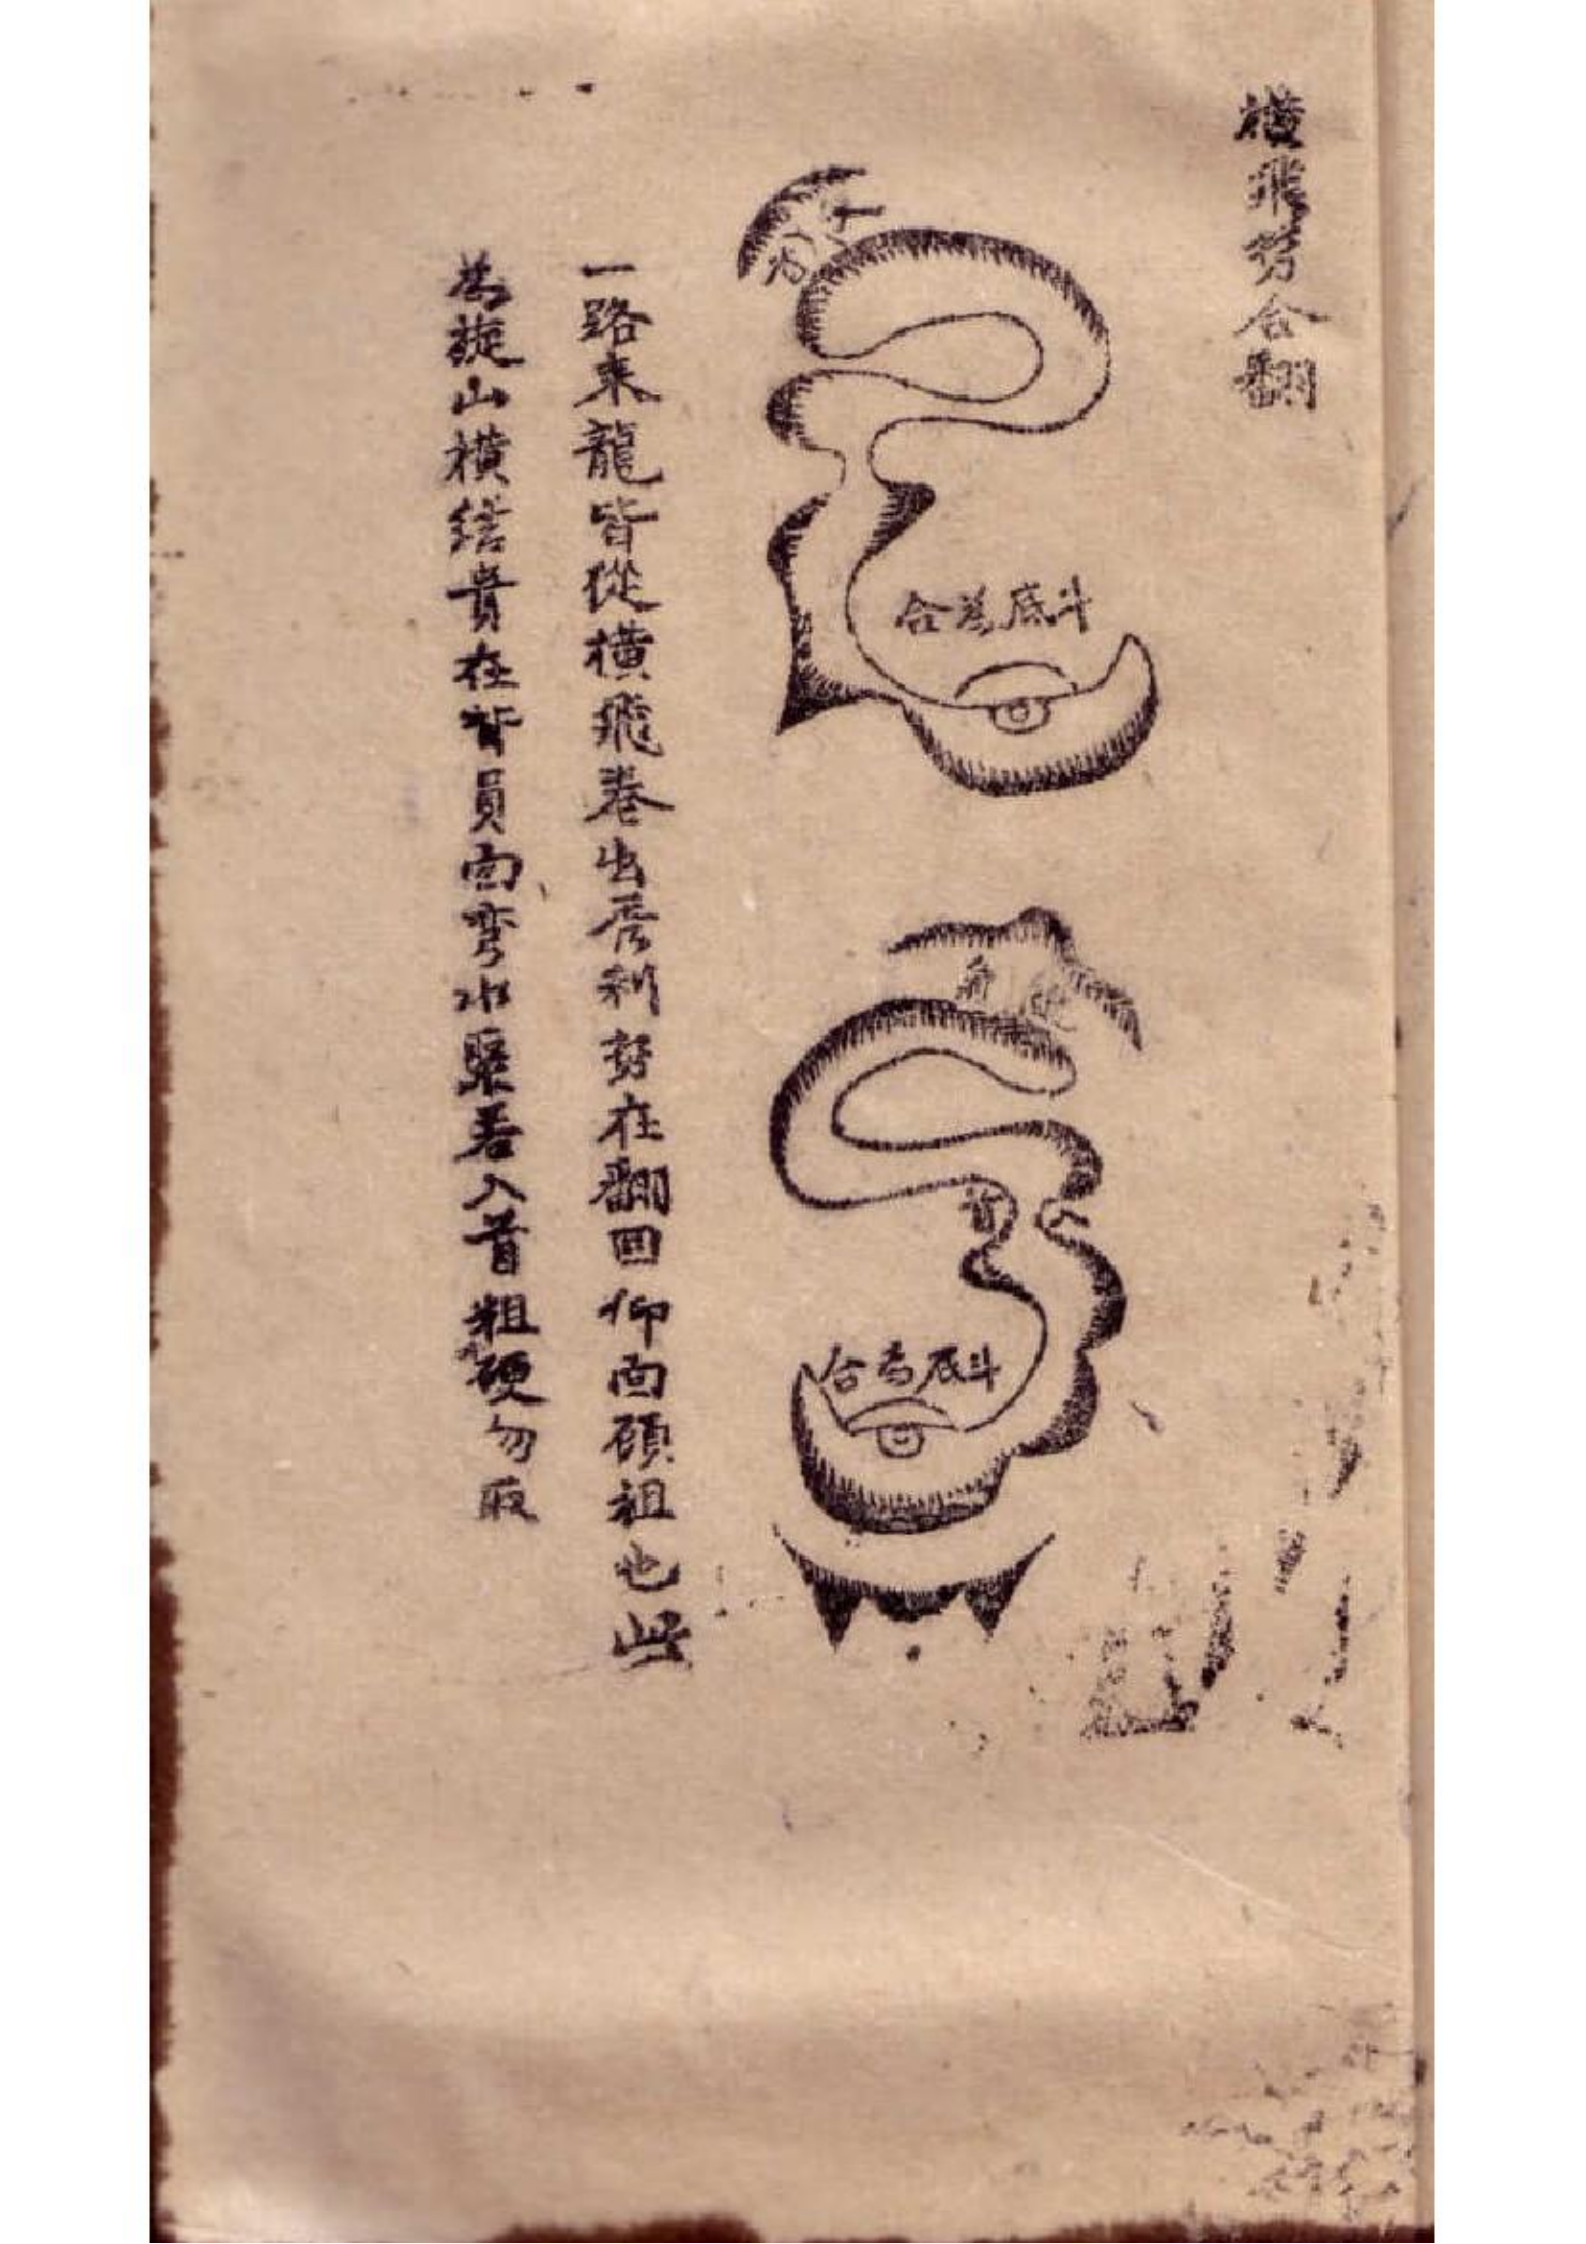 橫飛勢合翻
斗底為合
斗底為合
一路来龍皆從橫飛卷出唇利勢在翻回仰面顧祖也此
為旋山橫結貴在背員面弯水聚若入首粗硬勿取